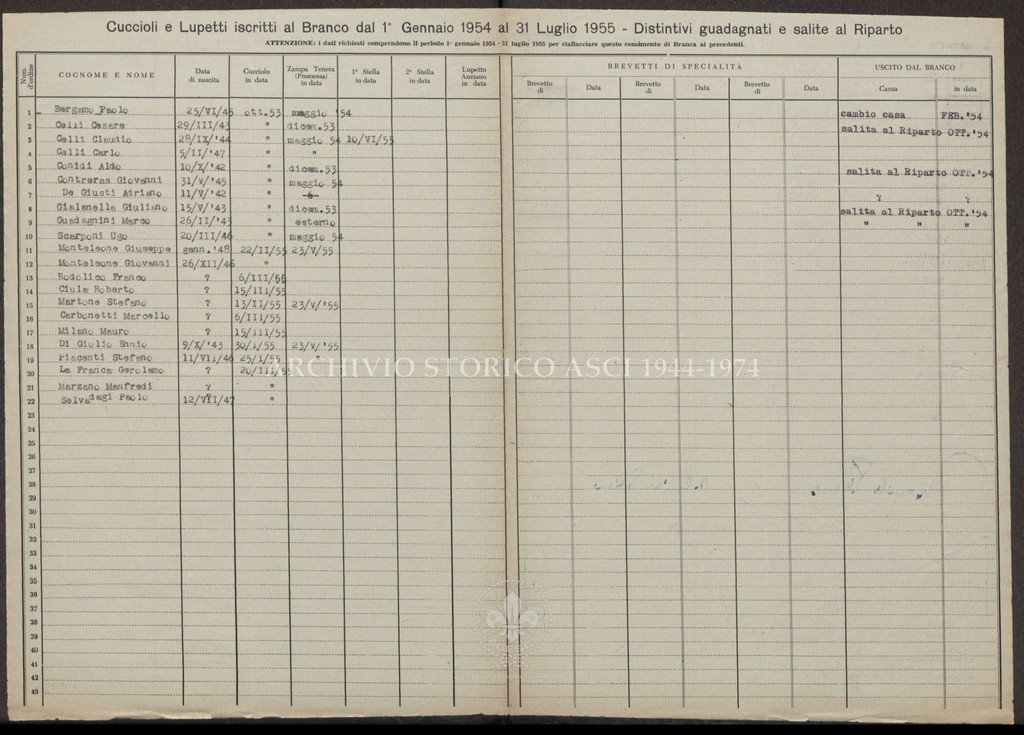 Cuccioli e Lupetti iscritti al Branco dal 1° Gennaio 1954 al 31 Luglio 1955 - Distintivi guadagnati e salite al Riparto
ATTENZIONE: i dati richiesti comprendono il periodo 1° gennaio 1954 - 31 luglio 1955 per riallacciare questo censimento di Branca ai precedenti.
Num. d'ordine COGNOME E NOME Data di nascita Cucciolo in data Zampa Tenera (Promessa) in data 1ª Stella in data 2ª Stella in data Lupetto Anziano in data BREVETTI DI SPECIALITÀ USCITO DAL BRANCO
Brevetto di Data Brevetto di Data Brevetto di Data Causa in data
1 Bergamo Paolo 25/VI/45 ott.53 maggio '54 cambio casa FEB.'54
2 Celli Cesare 29/III/43 " dicem.53 salita al Riparto OTT.'54
3 Celli Claudio 28/IX/'44 " maggio 54 10/VI/55
4 Celli Carlo 5/II/'47 " "
5 Conidi Aldo 10/X/'42 " dicem.53 salita al Riparto OTT.'54
6 Contreras Giovanni 31/V/'45 " maggio 54
7 De Giusti Adriano 11/V/'42 " ? ?
8 Gialanella Giuliano 15/V/'43 " dicem.53 salita al Riparto OTT.'54
9 Guadagnini Marco 26/II/'43 " esterno " " "
10 Scarponi Ugo 20/III/46 " maggio 54
11 Monteleone Giuseppe genn.'48 22/II/55 23/V/55
12 Monteleone Giovanni 26/XII/46 "
13 Rodolico Franco ? 6/III/55
14 Ciula Roberto ? 15/III/55
15 Martone Stefano ? 13/II/55 23/V/'55
16 Carbonetti Marcello ? 6/III/55
17 Milano Mauro ? 15/III/55
18 Di Giulio Ennio 9/X/'43 30/1/55 23/V/'55
19 Piacenti Stefano 11/VII/46 25/1/55 "
20 La Franca Gerolamo ? 20/III/55
21 Marzano Manfredi ? "
22 Selvadagi Paolo 12/VII/47 "
23
24
25
26
27
28
29
30
31
32
33
34
35
36
37
38
39
40
41
42
43
ARCHIVIO STORICO ASCI 1944-1974